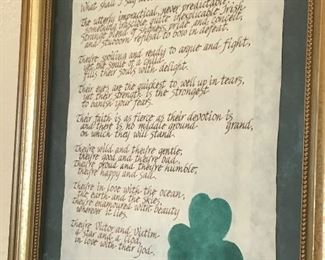 What shall I say
The utterly impractical, never predictable,
Sometimes irascible, quite inexplicable, Irish.
Strange blend of shyness, pride and conceit,
and stubborn refusal to bow in defeat.
They're spoiling and ready to argue and fight,
yet the smile of a child
fills their souls with delight.
Their eyes are the quickest to well up in tears,
yet their strength is the strongest
to banish your fears.
Their faith is as fierce as their devotion is grand,
and there is no middle ground
on which they will stand.
They're wild and they're gentle,
they're good and they're bad,
they're proud and they're humble,
they're happy and sad.
They're in love with the ocean,
the earth and the skies,
they're enamoured with beauty
wherever it lies.
They're victor and victim
a star and a clod,
in love with their God.